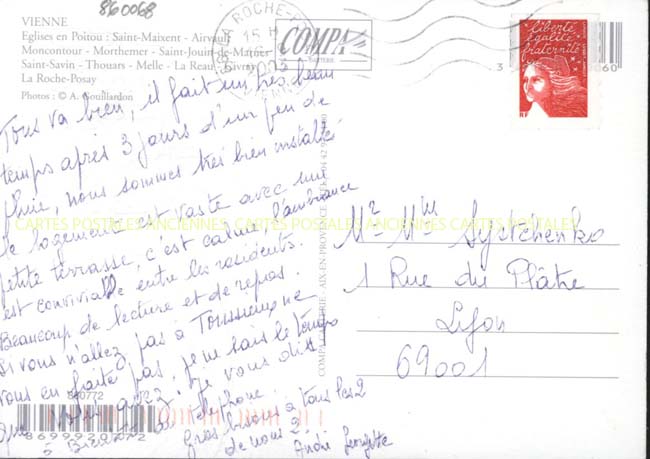 860068
VIENNE
Eglises en Poitou : Saint-Maixent - Airvault
Moncontour - Morthemer - Saint-Jouin-de-Marnes
Saint-Savin - Thouars - Melle - La Reau - Civray
La Roche-Posay
Photos : © A.
LA ROCHE-P
15 H
COMPA
liberté
égalité
fraternité
3
0060
Tous va bien, il fait un très beau
temps après 3 jours d'un peu de
pluie, nous sommes très bien installé
le logement est vaste avec une
petite terrasse, c'est calme l'ambiance
est conviviale entre les résidents.
Beaucoup de lecture et de repos.
Si vous n'allez pas à ne
vous en faite pas, je ne sais le temps
que je vous dis
à Bientôt téléphone
gros bisous a tous les 2
de nous 2.
André Georgette
CARTES POSTALES ANCIENNES CARTES POSTALES ANCIENNES CARTES POSTALES
AIX-EN-PROVENCE
Mr Mme Syrtchenko
1 Rue du Plâtre
Lyon
69001